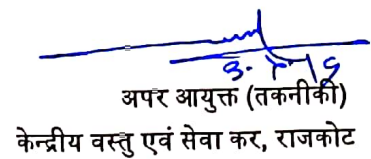 अपर आयुक्त (तकनीकी)
केन्द्रीय वस्तु एवं सेवा कर, राजकोट